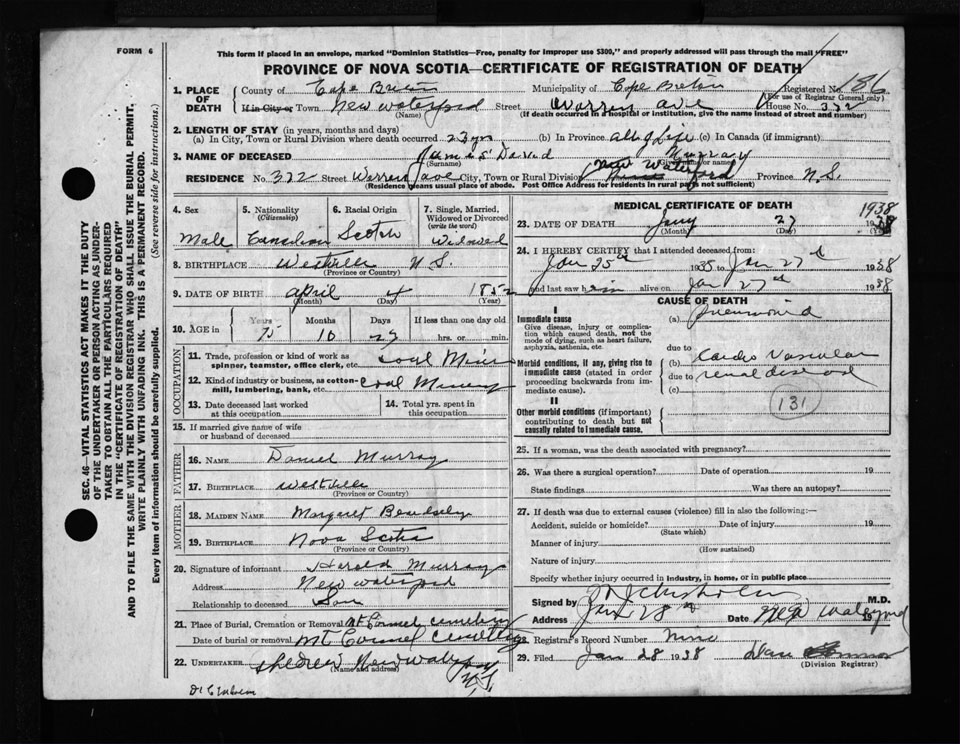 FORM 6
This form if placed in an envelope, marked "Dominion Statistics—Free, penalty for improper use $300," and properly addressed will pass through the mail "FREE"
PROVINCE OF NOVA SCOTIA—CERTIFICATE OF REGISTRATION OF DEATH
186
1. PLACE OF DEATH County of Cape Breton Municipality of Cape Breton Registered No.
(For use of Registrar General only)
If in City or Town New Waterford Street Warren ave House No. 332
(Name) (If death occurred in a hospital or institution, give the name instead of street and number)
2. LENGTH OF STAY (in years, months and days)
(a) In City, Town or Rural Division where death occurred 23 yrs (b) In Province all of life (c) In Canada (if immigrant)
3. NAME OF DECEASED James David Murray
(Surname) (Given or name)
RESIDENCE No. 332 Street Warren ave City, Town or Rural Division New Waterford Province N.S.
(Residence means usual place of abode. Post Office Address for residents in rural parts not sufficient)
SEC. 46—VITAL STATISTICS ACT MAKES IT THE DUTY
OF THE UNDERTAKER OR PERSON ACTING AS UNDER-
TAKER TO OBTAIN ALL THE PARTICULARS REQUIRED
IN THE "CERTIFICATE OF REGISTRATION OF DEATH"
AND TO FILE THE SAME WITH THE DIVISION REGISTRAR WHO SHALL ISSUE THE BURIAL PERMIT.
WRITE PLAINLY WITH UNFADING INK. THIS IS A PERMANENT RECORD.
Every item of information should be carefully supplied. (See reverse side for instructions.)
4. Sex
Male
5. Nationality
(Citizenship)
Canadian
6. Racial Origin
Scotch
7. Single, Married, Widowed or Divorced
(write the word)
Widowed
8. BIRTHPLACE Westville N S.
(Province or Country)
9. DATE OF BIRTH April 4
(Month) (Day) (Year)
10. AGE in Years Months Days If less than one day old
75 10 hrs. or min.
OCCUPATION
11. Trade, profession or kind of work as spinner, teamster, office clerk, etc. Coal Miner
12. Kind of industry or business, as cotton-mill, lumbering, bank, etc. Coal Mining
13. Date deceased last worked at this occupation
14. Total yrs. spent in this occupation
15. If married give name of wife or husband of deceased
FATHER
16. NAME Daniel Murray
17. BIRTHPLACE Westville
(Province or Country)
MOTHER
18. MAIDEN NAME Margaret
19. BIRTHPLACE Nova Scotia
(Province or Country)
20. Signature of informant Harold Murray
Address New Waterford
Relationship to deceased Son
21. Place of Burial, Cremation or Removal Mt Carmel cemetery
Date of burial or removal Mt Carmel Cemetery
22. UNDERTAKER New Waterford
(Name and address)
N.S.
MEDICAL CERTIFICATE OF DEATH
1938
23. DATE OF DEATH Jany 27 19
(Month) (Day)
24. I HEREBY CERTIFY that I attended deceased from:
Jan 25th 1935 to Jan 27th 1938
and last saw him alive on Jan 27th 1938
CAUSE OF DEATH
I
Immediate cause
Give disease, injury or complication which caused death, not the mode of dying, such as heart failure, asphyxia, asthenia, etc.
(a) Pneumonia
due to
Morbid conditions, if any, giving rise to immediate cause (stated in order proceeding backwards from immediate cause).
(b) Cardio Vascular
due to renal disease
(c)
131
II
Other morbid conditions (if important) contributing to death but not causally related to immediate cause.
25. If a woman, was the death associated with pregnancy?
26. Was there a surgical operation? Date of operation 19
State findings Was there an autopsy?
27. If death was due to external causes (violence) fill in also the following:—
Accident, suicide or homicide? Date of injury 19
(State which)
Manner of injury
(How sustained)
Nature of injury
Specify whether injury occurred in industry, in home, or in public place
Signed by Chisholm M.D.
Address Jan 28th Date New Waterford 19
28. Registrar's Record Number nine
29. Filed Jan 28 1938 Dan
(Division Registrar)